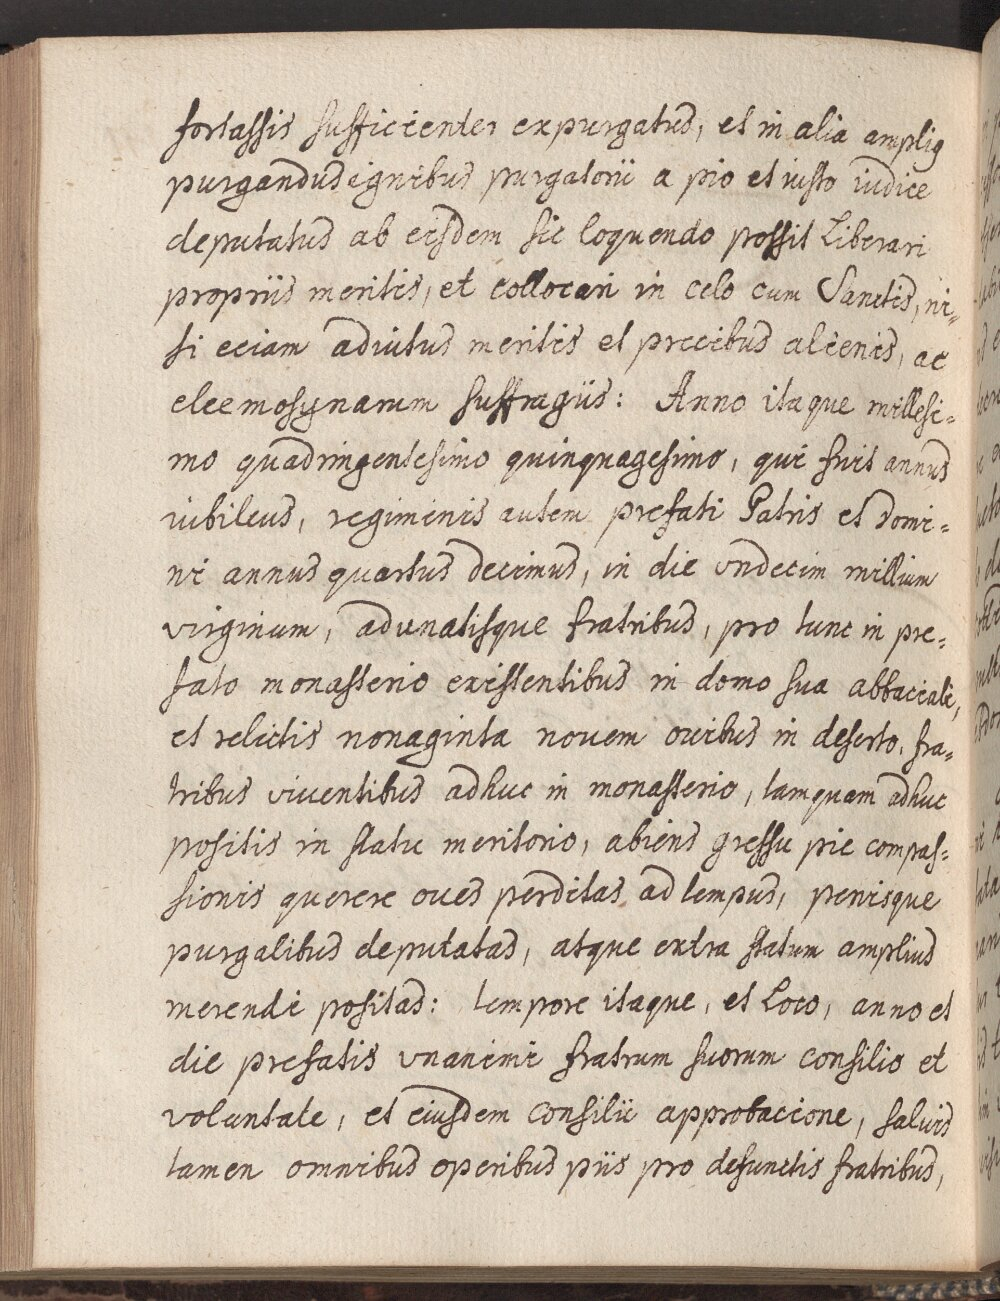 fortassis sufficienter expurgatus, et in alia amplius
purgandus ignibus purgatorii a pio et iusto iudice
deputatus ab eisdem sic loquendo possit Liberari
propriis meritis, et collocari in celo cum Sanctis, ni-
si eciam adiutus meritis et precibus alienis, ac
eleemosynarum suffragiis: Anno itaque millesi-
mo quadringentesimo quinquagesimo, qui fuit annus
iubileus, regiminis autem prefati Patris et Domi-
ni annus quartus decimus, in die vndecim millium
virginum, adunatisque fratribus, pro tunc in pre-
fato monasterio existentibus in domo sua abbaciali,
et relictis nonaginta novem ovibus in deserto, fra-
tribus viventibus adhuc in monasterio, tamquam adhuc
positis in statu meritorio, abiens gressu pie compas-
sionis querere oves perditas ad tempus, penisque
purgalibus deputatas, atque extra statum amplius
merendi positas: tempore itaque, et Loco, anno et
die prefatis vnanimi fratrum suorum consilio et
voluntate, et eiusdem consilii approbacione, salvis
tamen omnibus operibus piis pro defunctis fratribus,